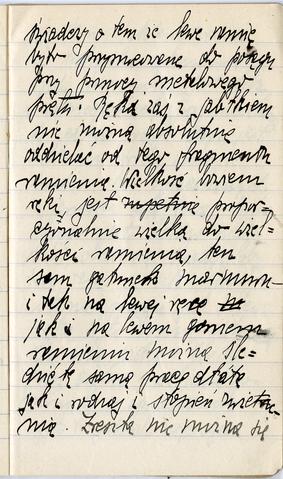 świadczy o tem że lewe ramię
było przymocowane do posągu
przy pomocy metalowego
pręta. Ręka zaś z jabłkiem
nie można absolutnie
oddzielać od tego fragmentu
ramienia. Wielkość bowiem
ręki jest zupełnie propor-
cyonalnie wielka do wiel-
kości ramienia, ten
sam gatunek marmuru
i tak na lewej ręce
jak i na lewem
ramieniu można śle-
dzić tę samą pracę dłuta
jak i rodzaj i stopień zwietrze-
nia. Zresztą nie można się